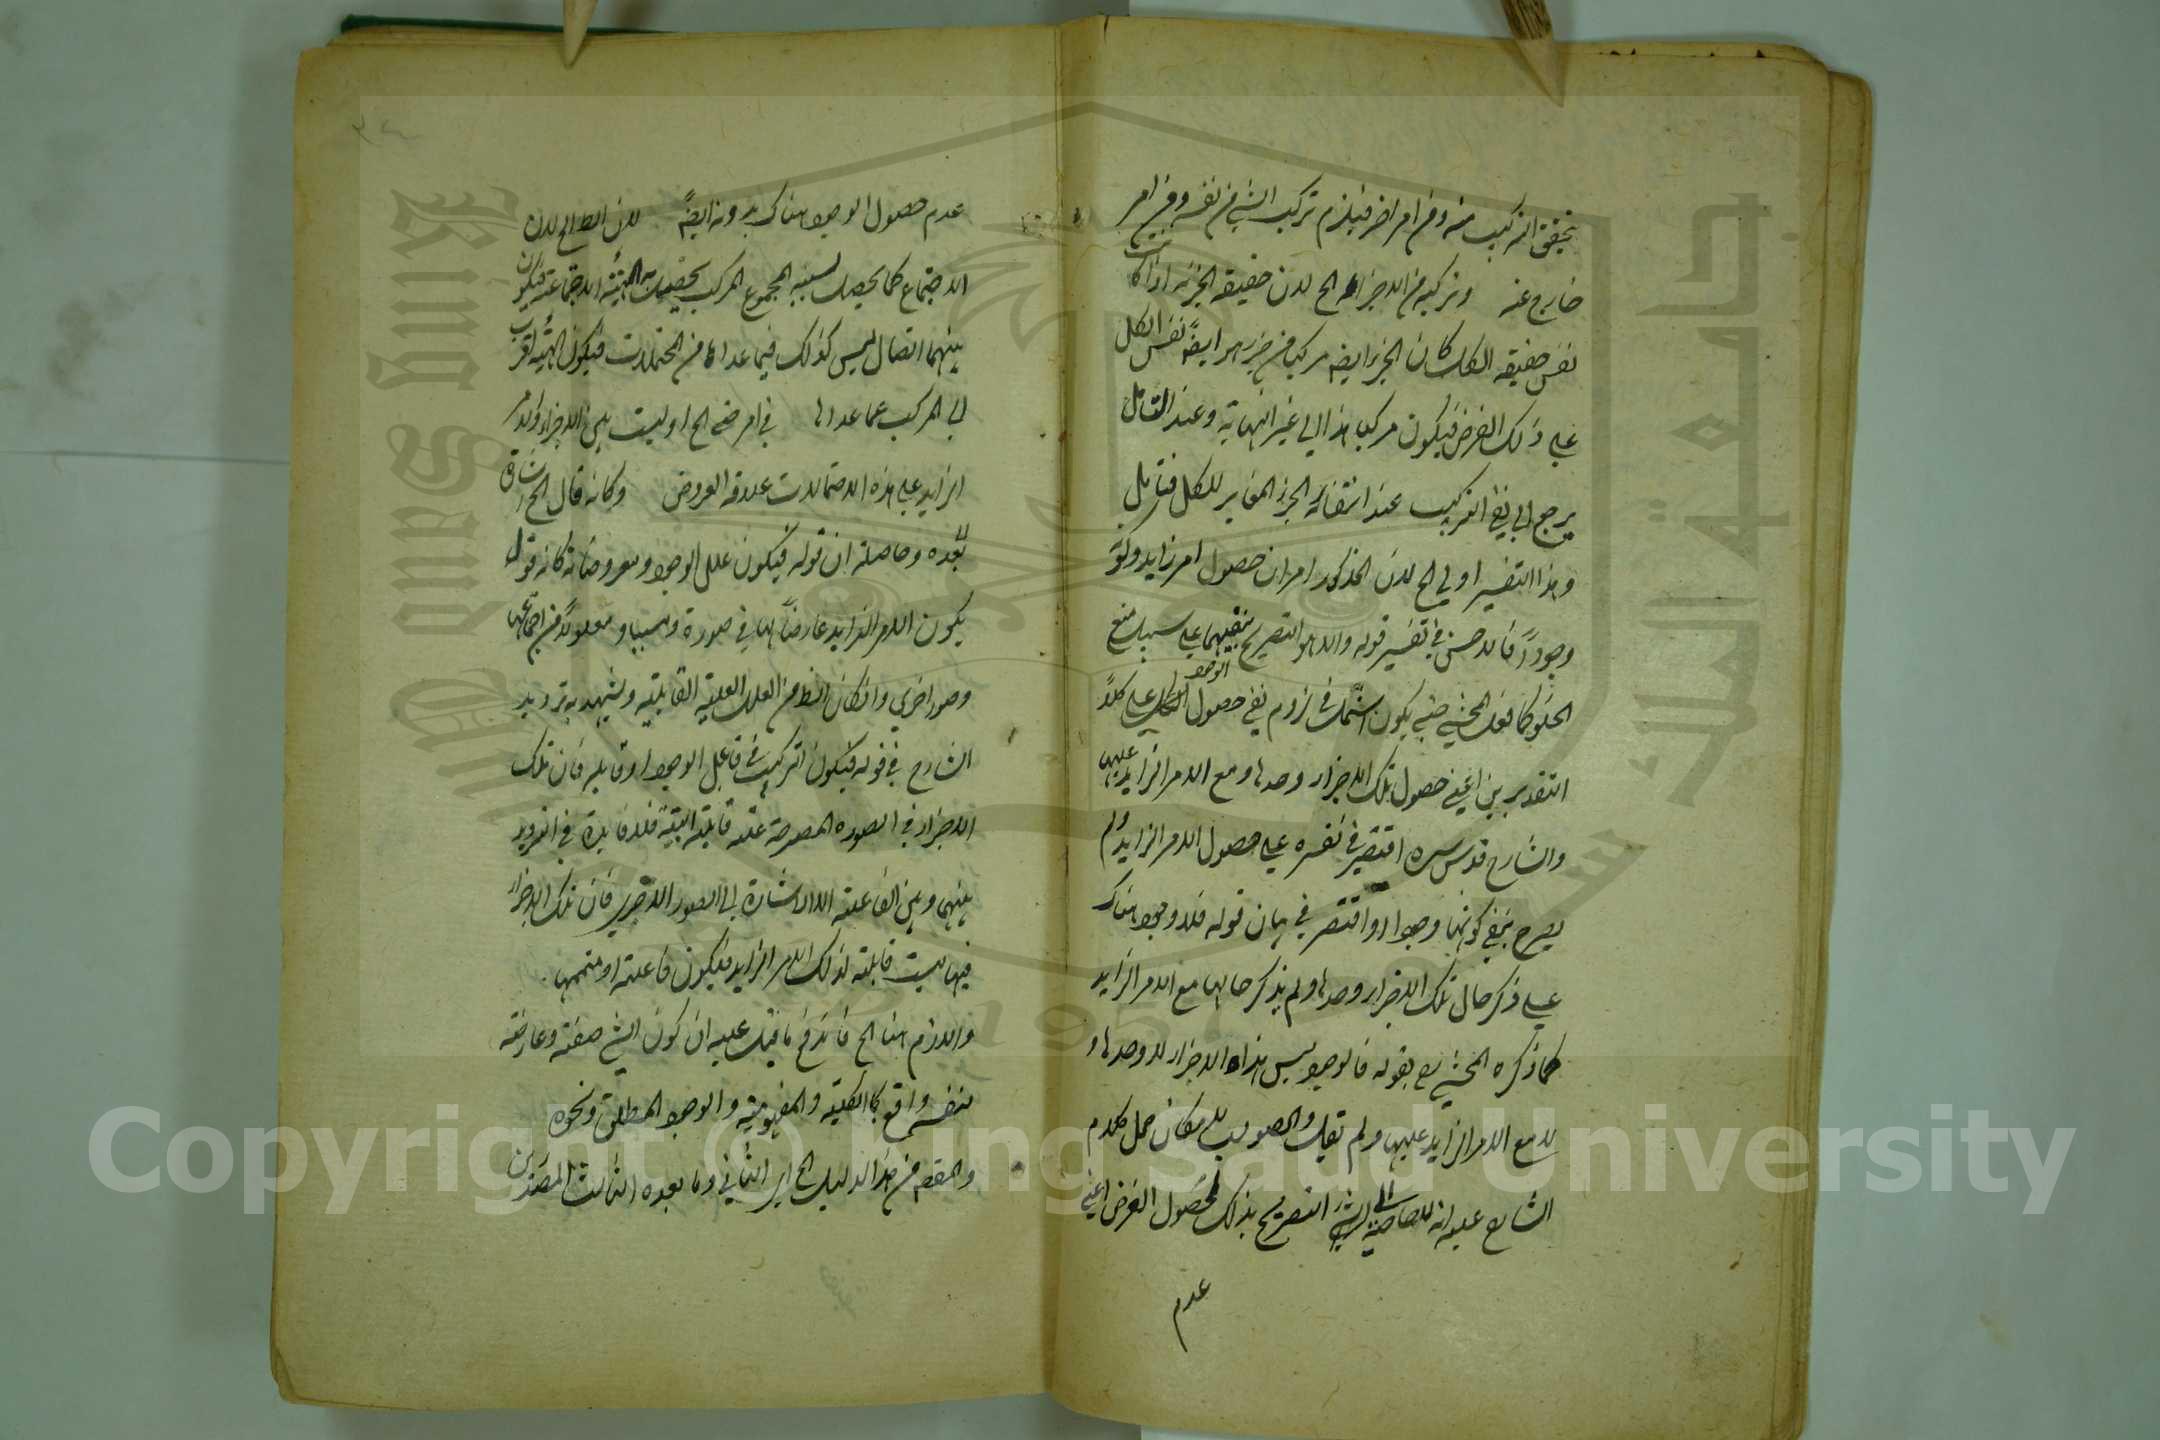 يتحقق التركيب منه ومن امر اخر فيلزم تركيب الشئ من نفسه ومن امر
خارج عنه وتركبه من الاجزاء الح لان حقيقة الجزء اذا كانت
نفس حقيقة الكل كان الجزء ايضا مركبا من جزء هو ايضاً نفس الكل
على ذلك الفرض فيكون مركبا هذا الى غير النهاية وعند التأمل
يرجع الى نفي التركيب عند انتفاء الجزء المغاير للكل فتأمل
وهذا التفسير اولى الح لان المذكور امران حصول امر زايد وكونه
وجوداً فالاحسن في تفسير قوله والا هو التصريح بنفيهما على سبيل منع
الخلو كما فعله المحشي حتى يكون اشمل في لزوم نفي حصول الوجود الكل على كلا
التقديرين اعني حصول تلك الاجزاء وحدها ومع الامر الزايد عليها
والشارح قدس سره اقتصر في تفسيره على حصول الامر الزايد ولم
يصرح بنفي كونها وجودا واقتصر في بيان قوله فلا وجود هناك
على ذكر حال تلك الاجزاء وحدها ولم يذكر حالها مع الامر الزايد
كما ذكره المحشي بقوله فالوجود ليس هذه الاجزاء لا وحدها و
لا مع الامر الزايد عليها ولم يقل والصواب لامكان حمل كلام
الشارح عليه انه التصريح بذلك لحصول الغرض اعني
عدم
عدم حصول الوجود هناك بدونه ايضاً لان الح لان
الاجتماع كما يحصل بسببه المجموع المركب يحصل به الهيئة الاجتماعية فيكون
بينهما اتصال ليس كذلك فيما عداها من المحتملات فيكون الهيئة اقرب
الى المركب عما عداها في امر ضه الح اوليت بين الاجزاء والامر
الزايد على هذه الاحتمالات علاقة العروض وكانه قال الح اشارة
بعده وحاصله ان قوله فيكون علل الوجود ومعروضاته كانه قول
يكون الامر الزايد عارضاً لها في صورة ومسببا ومعلولاً من اجتماعها
وصور اخرى وان كان من العلل العلية القابلية ويشهد به ترديد
الشارح في قوله فيكون التركيب في فاعل الوجود او قابله فان تلك
الاجزاء في الصورة المصرحة علة قابلية البتة فلا فايدة في الترديد
بينها وبين الفاعلية الا الاشارة الى الصور الاخرى فان تلك الاجزاء
فيها ليست قابلة لذلك الامر الزايد فيكون فاعلة او متممها
واللازم هنا الح فاندفع ما قيل عليه ان كون الشئ صفة وعارضة
لنفسه واقع كالكلية والمفهومية والوجود المطلق ونحوه
والمقصد من هذا الدليل الح اي الثاني وما بعده الثالث المصدرين
Copyright © King Saud University
King Saud University
جامعة الملك سعود
1957